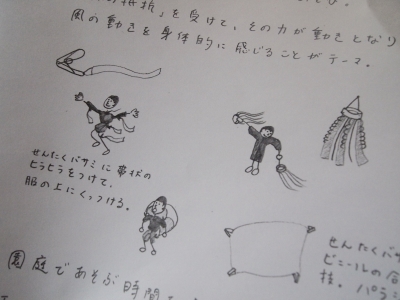 抵抗」を受けて、その力が動きとなり
風の動きを身体的に感じることがテーマ。
せんたくバサミに帯状の
ヒラヒラをつけて、
服の上にくっつける。
せんたくバサ
ビニールの
技。パラシ
園庭であそぶ時間